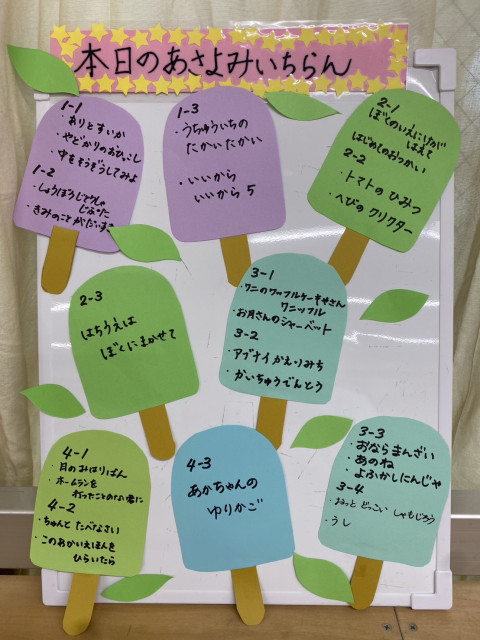 本日のあさよみいちらん
1-1
・ありとすいか
・やどかりのおひっこし
・中をそうぞうしてみよ
1-2
・しょうぼうじどうしゃ
じぷた
・きみのことがだいすき
1-3
・うちゅういちの
たかいたかい
・いいから
いいから5
2-1
ぼくのいえにけがが
はえて
はじめてのおつかい
2-2
・トマトのひみつ
・へびのクリクター
2-3
はちうえは
ぼくにまかせて
3-1
・ワニのワッフルケーキやさん
ワニッフル
・お月さんのシャーベット
3-2
・アブナイかえりみち
・かいちゅうでんとう
3-3
・おならまんざい
・あのね
・よふかしにんじゃ
3-4
・おっとどっこいしゃもじろう
・うし
4-1
・月のみはりばん
・ホームランを
打ったことのない君に
4-2
・ちゃんとたべなさい
・このあかいえほんを
ひらいたら
4-3
あかちゃんの
ゆりかご